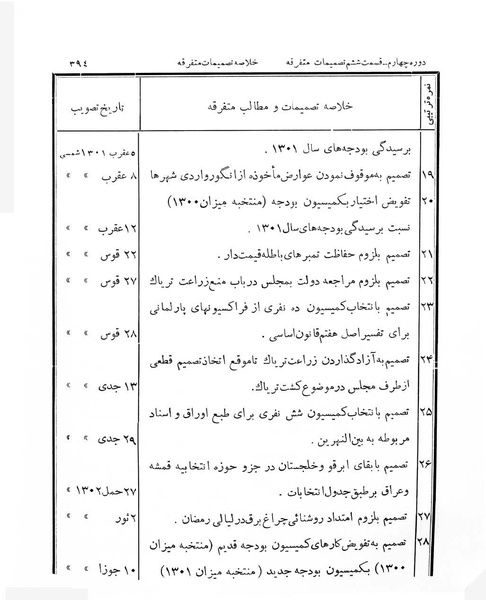 دوره چهارم-قسمت ششم تصمیمات متفرقه خلاصه تصمیمات متفرقه ۳۹٤
نمره ترتیبی خلاصه تصمیمات و مطالب متفرقه تاریخ تصویب
برسیدگی بودجه‌های سال ۱۳۰۱ . ۵ عقرب ۱۳۰۱ شمسی
۱۹ تصمیم به موقوف نمودن عوارض مأخوذه از انگور واردی شهرها ۸ عقرب » »
۲۰ تفویض اختیار بکمیسیون بودجه (منتخبه میزان ۱۳۰۰)
نسبت برسیدگی بودجه‌های سال ۱۳۰۱ . ۱۲ عقرب » »
۲۱ تصمیم بلزوم حفاظت تمبرهای باطله قیمت‌دار . ۲۲ قوس » »
۲۲ تصمیم بلزوم مراجعه دولت بمجلس در باب منع زراعت تریاك ۲۷ قوس » »
۲۳ تصمیم با نتخاب کمیسیون ده نفری از فراکسیونهای پارلمانی
برای تفسیر اصل هفتم قانون اساسی . ۲۸ قوس » »
۲٤ تصمیم به آزاد گذاردن زراعت تریاك تا موقع اتخاذ تصمیم قطعی
از طرف مجلس در موضوع کشت تریاك. ۱۳ جدی » »
۲۵ تصمیم با نتخاب کمیسیون شش نفری برای طبع اوراق و اسناد
مربوطه به بین النهرین . ۲۹ جدی » »
۲۶ تصمیم با بقای ابرقو و خلجستان در جزو حوزه انتخابیه قمشه
و عراق بر طبق جدول انتخابات . ۲۷ حمل ۱۳۰۲ »
۲۷ تصمیم بلزوم امتداد روشنائی چراغ برق در لیالی رمضان . ۲ ثور » »
۲۸ تصمیم به تفویض کارهای کمیسیون بودجه قدیم (منتخبه میزان
۱۳۰۰) بکمیسیون بودجه جدید (منتخبه میزان ۱۳۰۱) ۱۰ جوزا » »